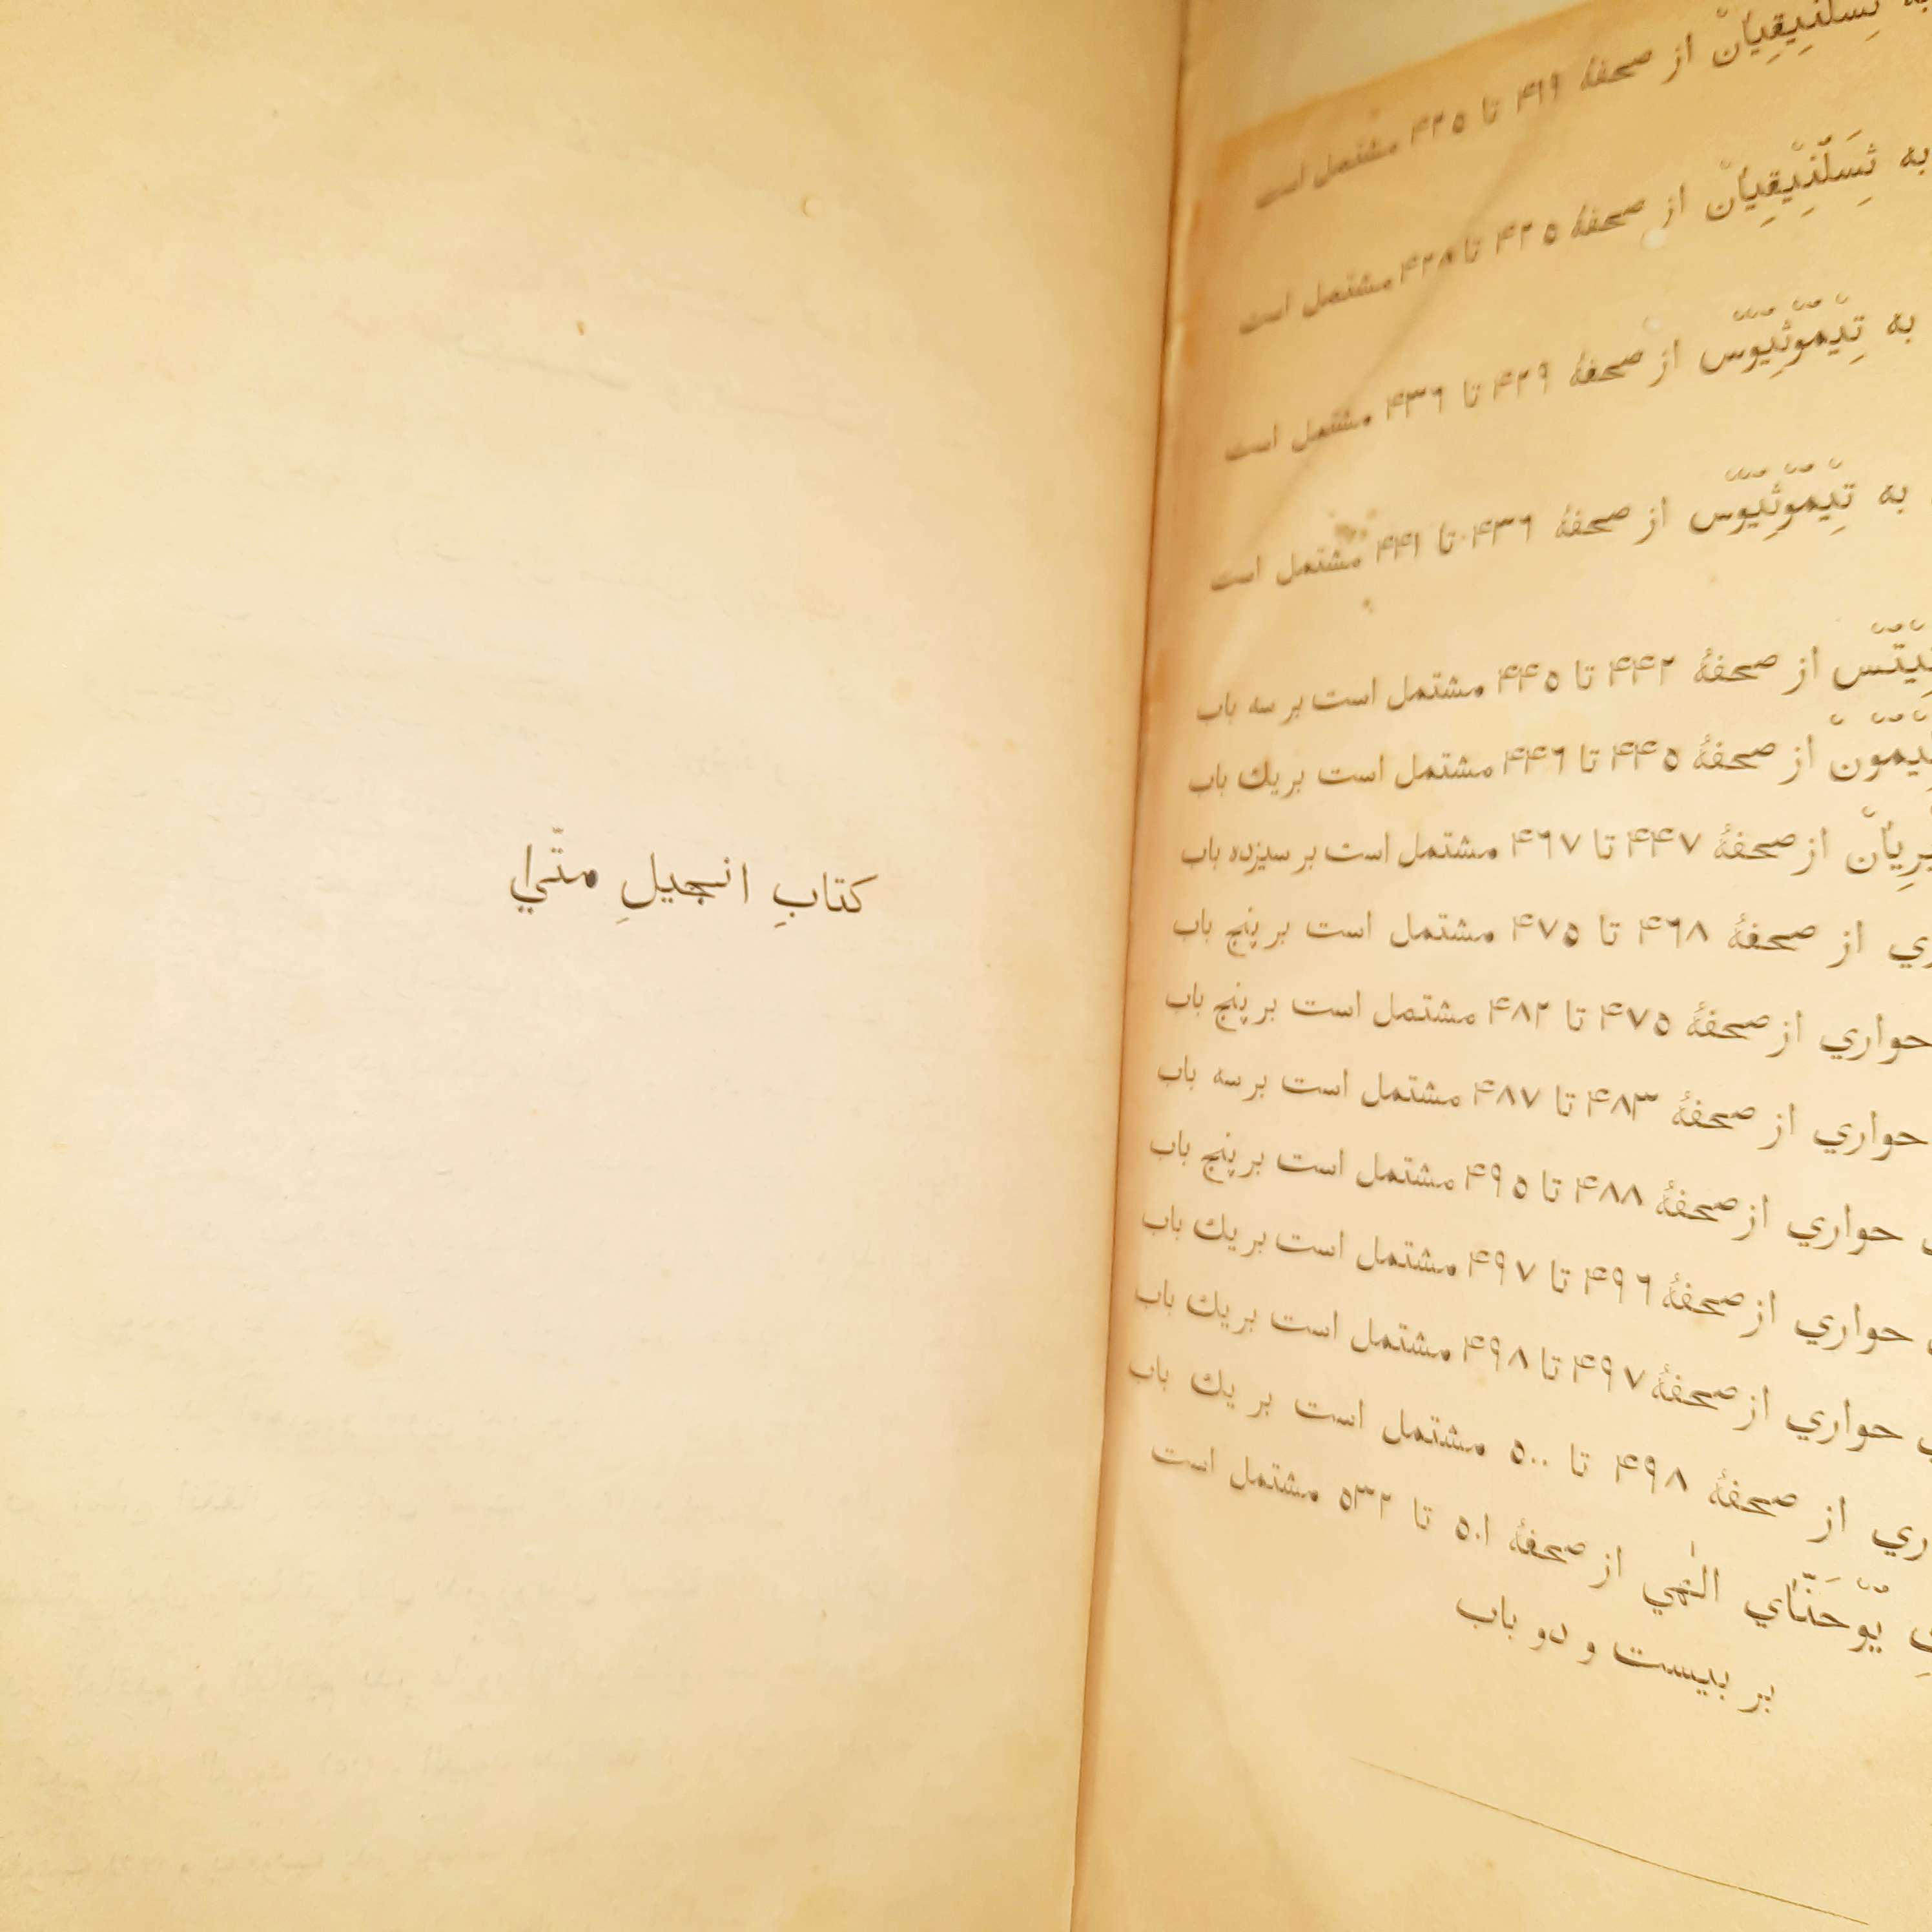 به تِسلُنِیقِیانْ از صحفهٔ ۴۱۹ تا ۴۲۵ مشتمل است
به تِسَلّنِیقِیانْ از صحفهٔ ۴۲۵ تا ۴۲۸ مشتمل است
به تِیموّثِیوسّ از صحفهٔ ۴۲۹ تا ۴۳۶ مشتمل است
به تِیموّثِیوسّ از صحفهٔ ۴۳۶ تا ۴۴۱ مشتمل است
از صحفهٔ ۴۴۲ تا ۴۴۵ مشتمل است بر سه باب
از صحفهٔ ۴۴۵ تا ۴۴۶ مشتمل است بر يك باب
از صحفهٔ ۴۴۷ تا ۴۶۷ مشتمل است بر سیزده باب
از صحفهٔ ۴۶۸ تا ۴۷۵ مشتمل است بر پنج باب
حواري از صحفهٔ ۴۷۵ تا ۴۸۲ مشتمل است بر پنج باب
حواري از صحفهٔ ۴۸۳ تا ۴۸۷ مشتمل است بر سه باب
حواري از صحفهٔ ۴۸۸ تا ۴۹۵ مشتمل است بر پنج باب
حواري از صحفهٔ ۴۹۶ تا ۴۹۷ مشتمل است بر يك باب
حواري از صحفهٔ ۴۹۷ تا ۴۹۸ مشتمل است بر يك باب
از صحفهٔ ۴۹۸ تا ۵۰۰ مشتمل است بر يك باب
یوّحَنّاي الٰهي از صحفهٔ ۵۰۱ تا ۵۳۲ مشتمل است
بر بیست و دو باب
کتابِ انجیلِ متّي